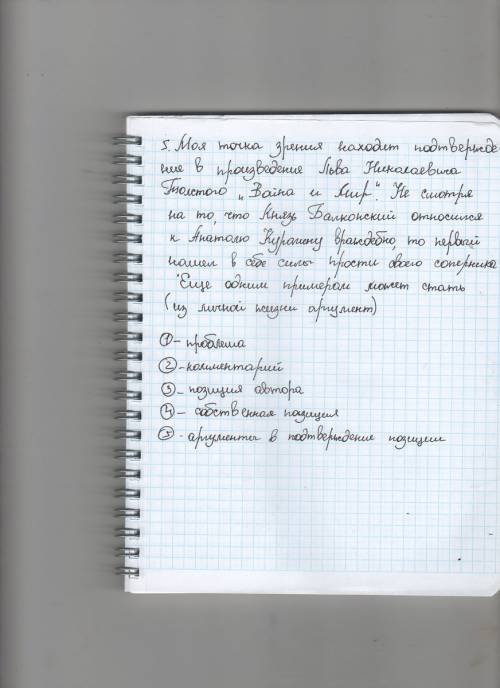 5. Моя точка зрения находит подтвержде-
ние в произведение Льва Николаевича
Толстого „Война и Мир". Не смотря
на то, что Князь Балконский относился
к Анатолю Курагину враждебно, то первый
нашел в себе силы прости своего соперника
Еще одним примером может стать
(из личной жизни аргумент)
① - проблема
② - комментарий
③ - позиция автора
④ - собственная позиция
⑤ - аргументы в подтверждение позиции